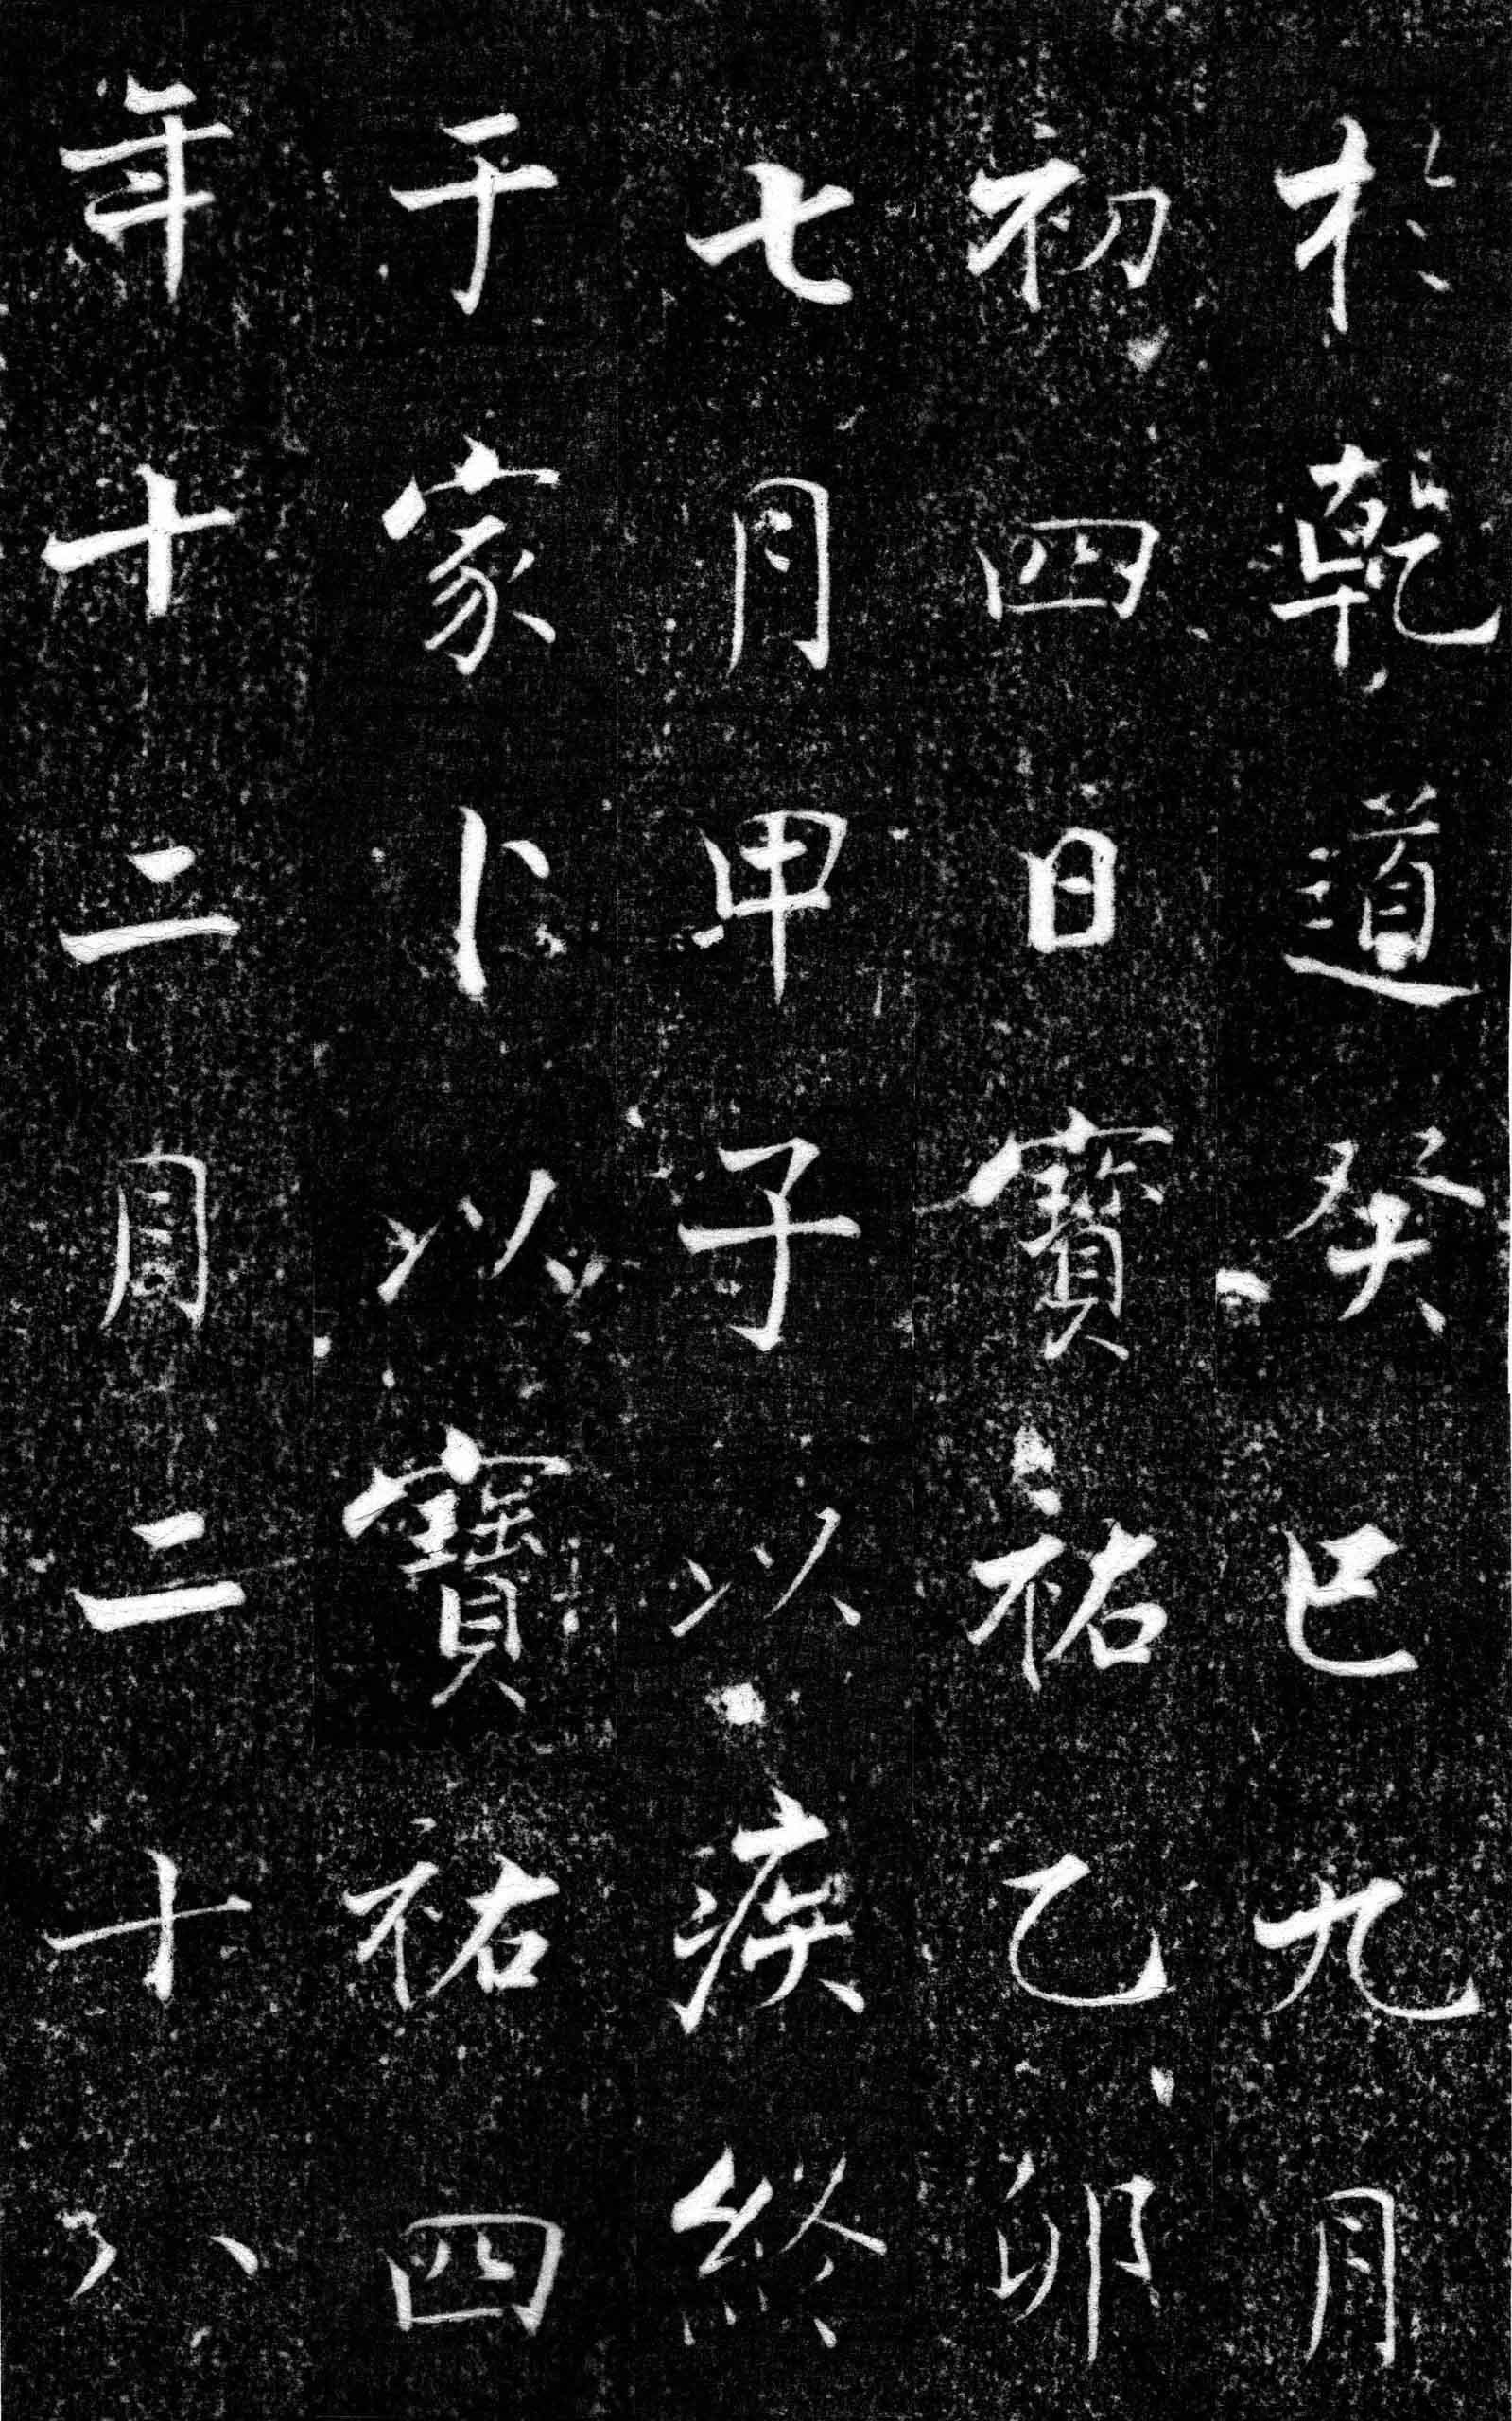 於乾道癸巳九月
初四日寶祐乙卯
七月甲子以疾終
于家卜以寶祐四
年十二月二十八